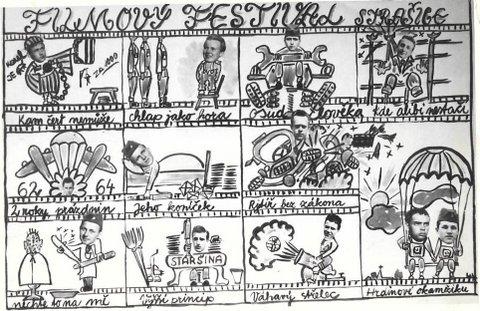 FILMOVÝ FESTIVAL STRAŠICE
Kam čert nemůže
chlap jako hora
Osud člověka
Kde alibi nestačí
62 64
2 roky prázdnin
Jeho koníček
Rytíř bez zákona
STARŠINA
nechte to na mě
vyšší princip
Váhavý střelec
Hrdinové okamžiku